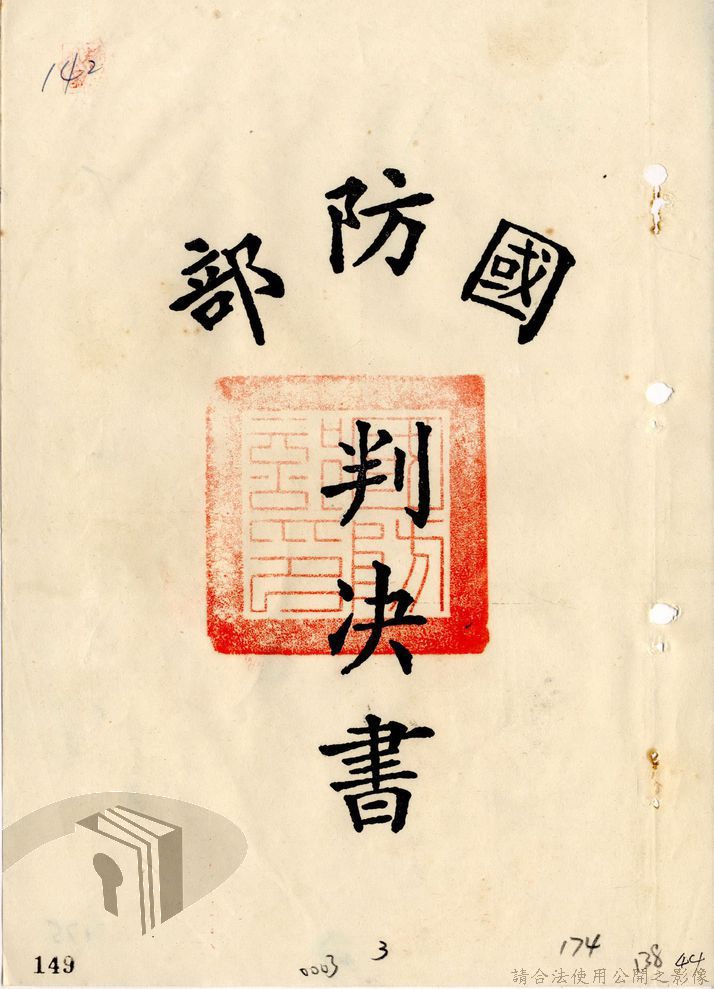 142
國防部
判決書
149
0003
3
174
138
44
請合法使用公開之影像